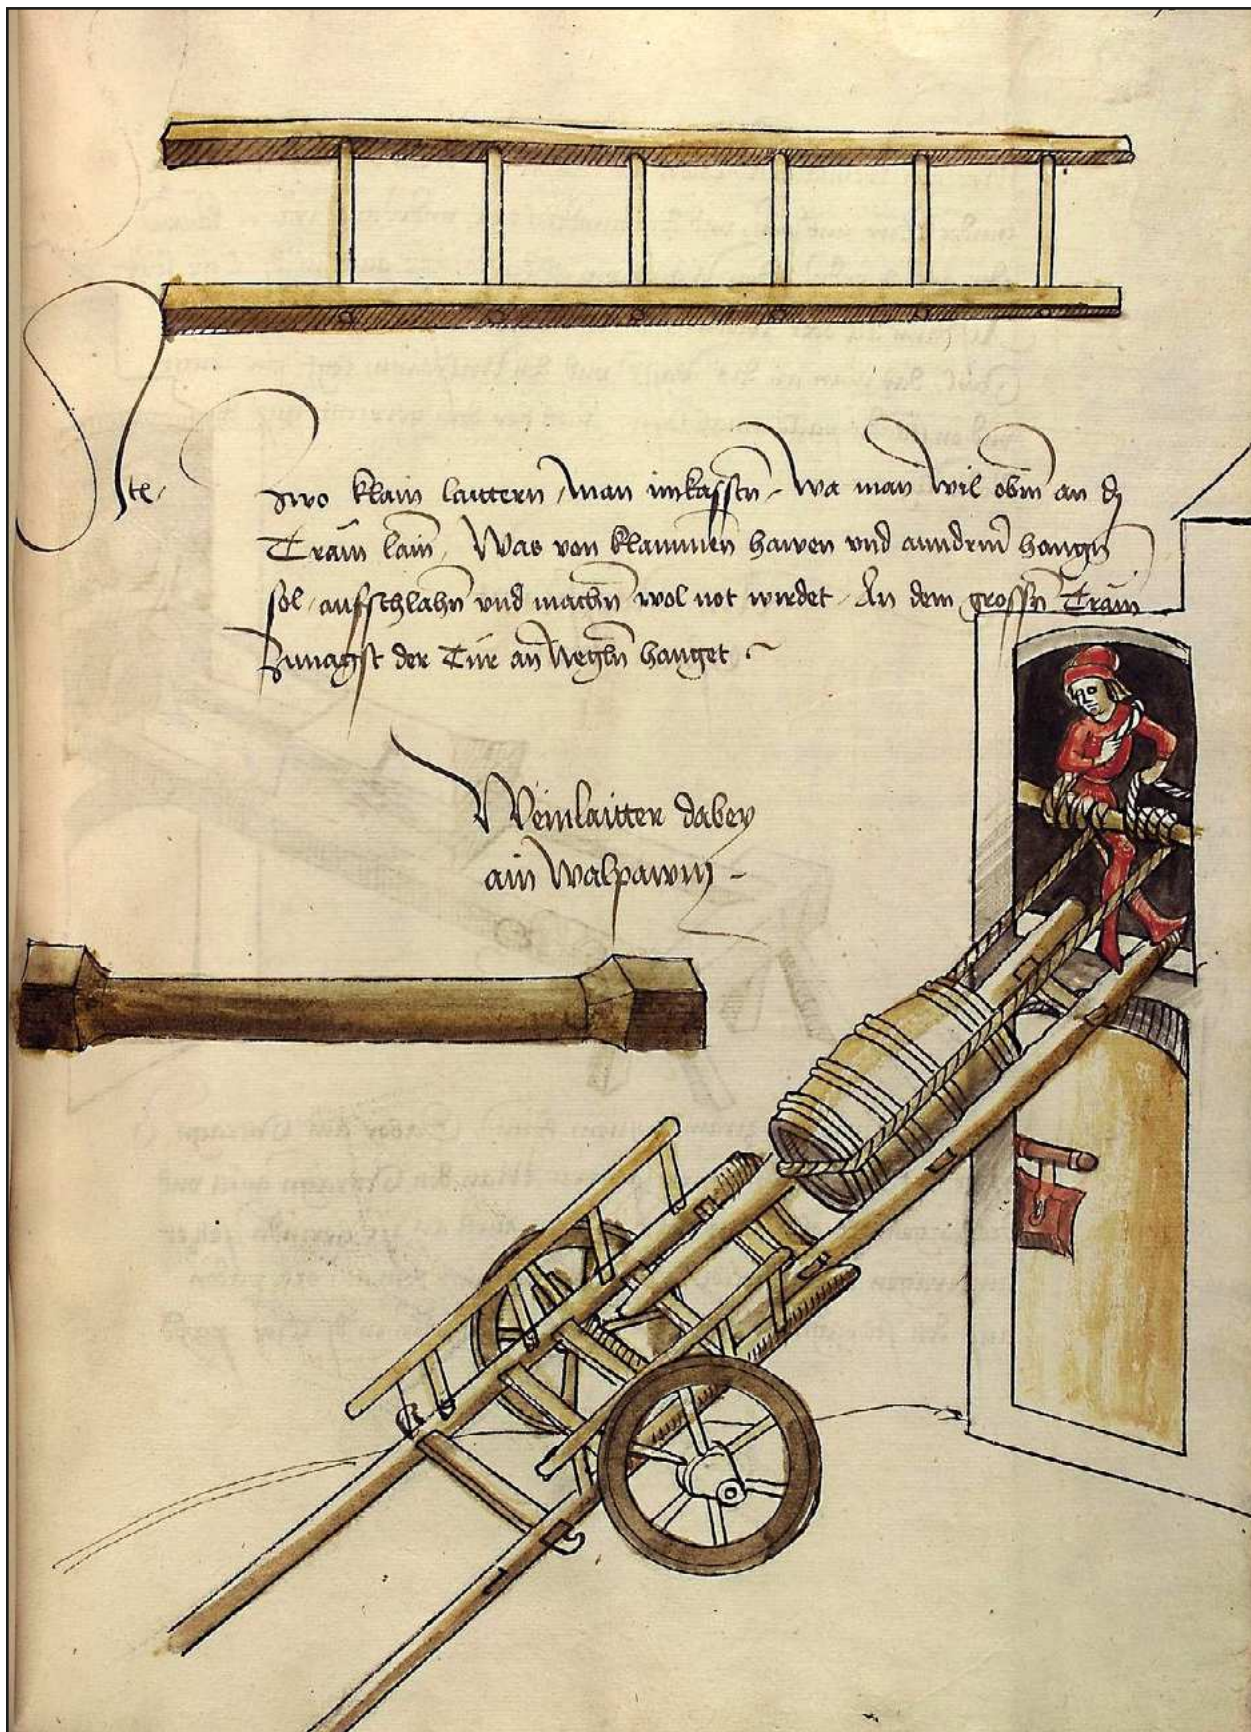 Ite
zwo klain laittern, Man inkassten, Wa man Wil obin an dj
Tram lain, Was von klammen hawen vnd anndrm hangn
sol, aufschlahn vnd machn wol not wirdet, An dem grossn Tram
Zunagst der Tür an Neglin hanget
Weinlaitter dabey
ain Walpawm